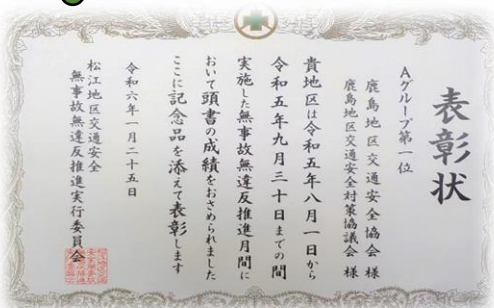 表彰状
Aグループ第一位
鹿島地区交通安全協会様
鹿島地区交通安全対策協議会様
貴地区は令和五年八月一日から
令和五年九月三十日までの間
実施した無事故無違反推進月間に
おいて頭書の成績をおさめられました
ここに記念品を添えて表彰します
令和六年一月二十五日
松江地区交通安全
無事故無違反推進実行委員会